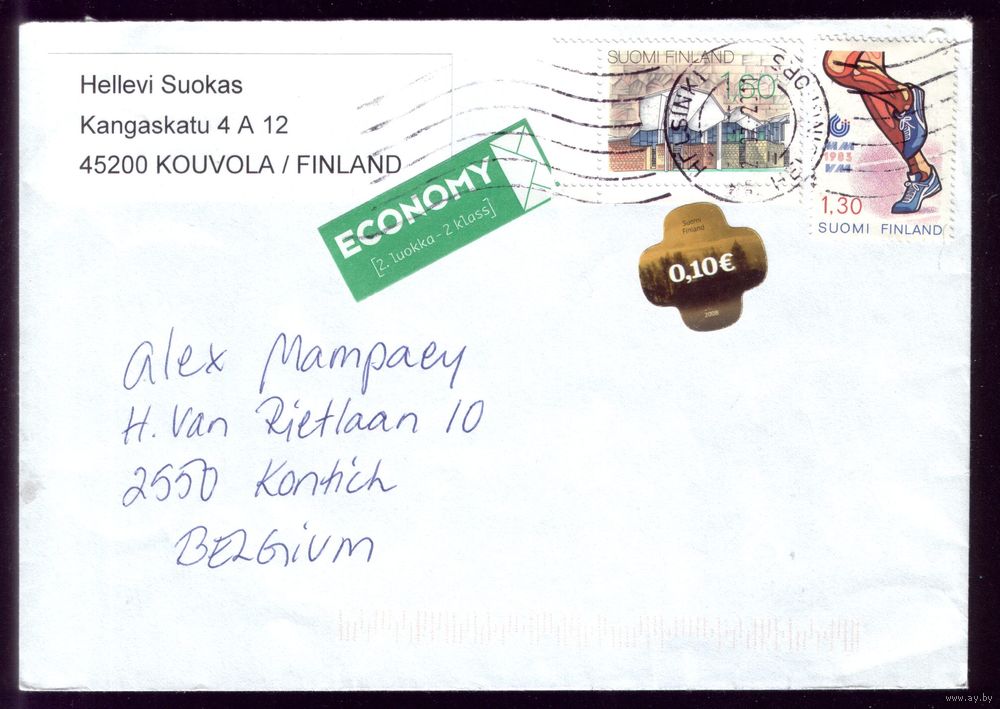 Hellevi Suokas
Kangaskatu 4 A 12
45200 KOUVOLA / FINLAND
ECONOMY
[2. luokka - 2 klass]
SUOMI FINLAND
1,60
HELSINKI
MM
1983
VM
1,30
SUOMI FINLAND
Suomi
Finland
0,10€
2008
Alex Mampaey
H. Van Rietlaan 10
2550 Kontich
BELGIUM
www.ay.by